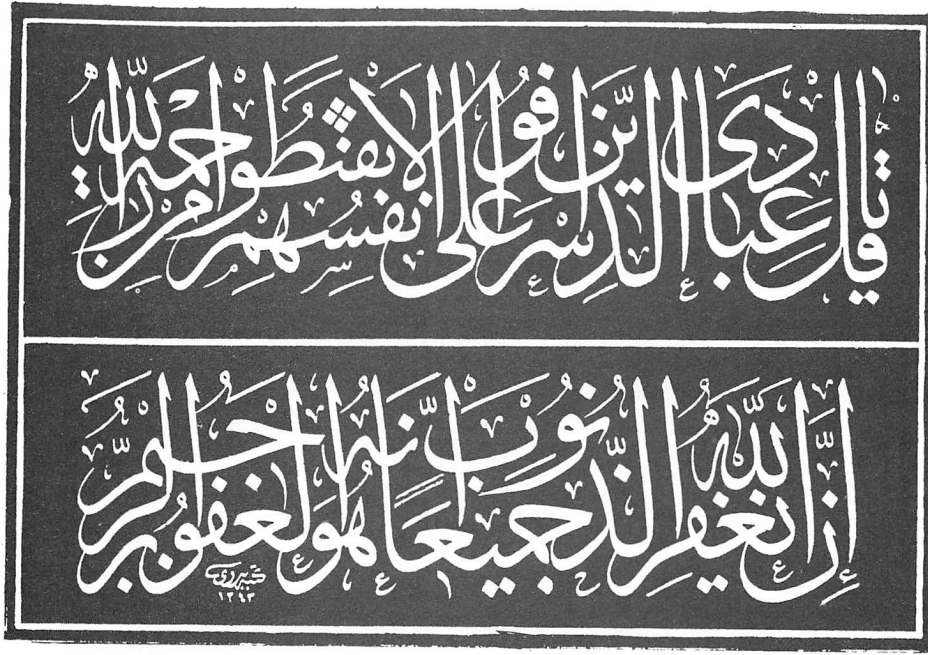 قُلْ يَا عِبَادِيَ الَّذِينَ أَسْرَفُوا عَلَى أَنْفُسِهِمْ لَا تَقْنَطُوا مِنْ رَحْمَةِ اللَّهِ
إِنَّ اللَّهَ يَغْفِرُ الذُّنُوبَ جَمِيعًا إِنَّهُ هُوَ الْغَفُورُ الرَّحِيمُ
١٣٩٣